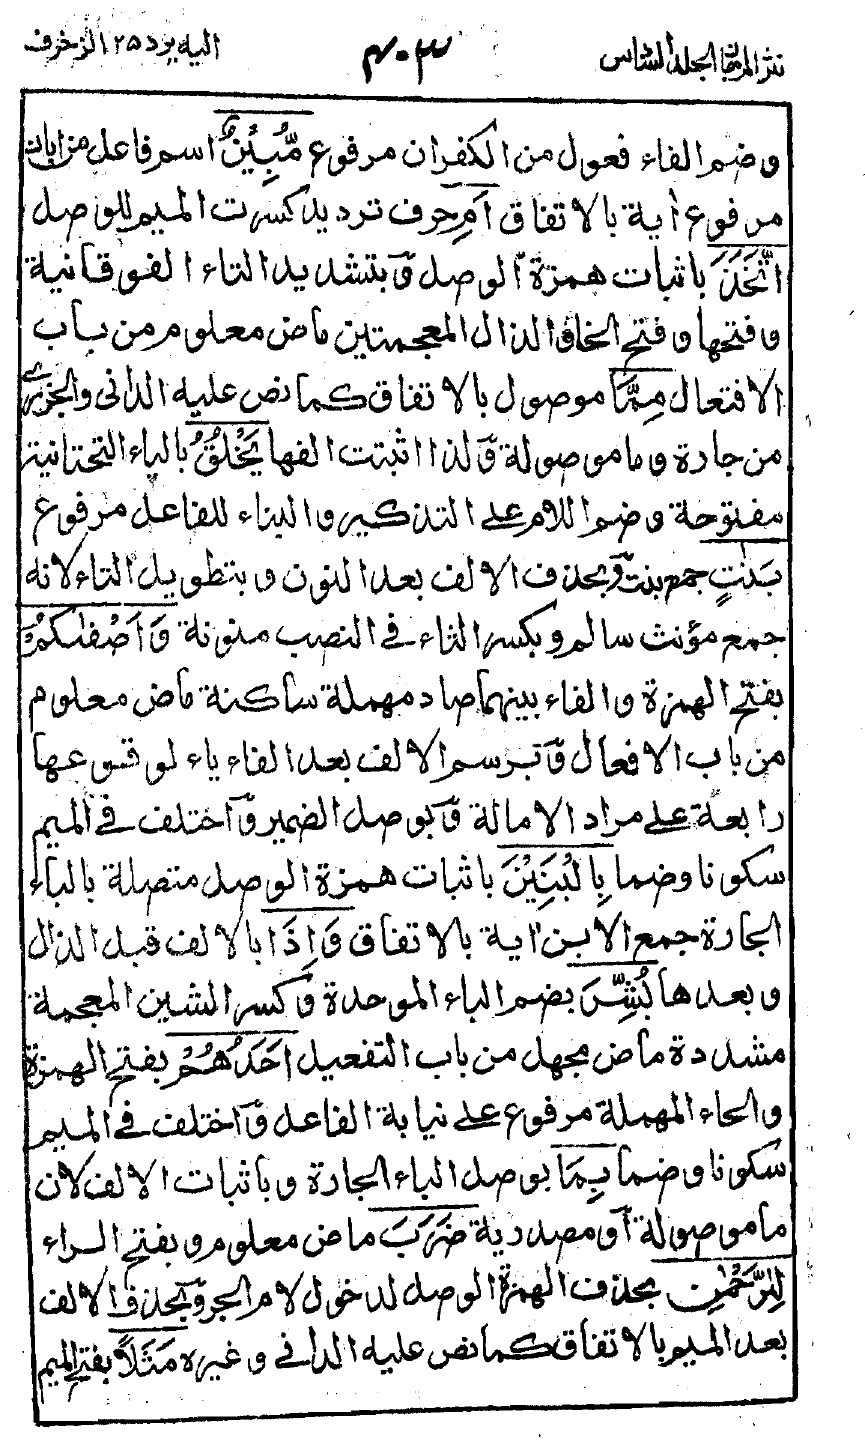 نثر المرجان الجلد السادس
۴۰۳
اليه يرد ۲۵ الزخرف
وضم الفاء فعول من الكفران مرفوع مُّبِيْنٌ اسم فاعل من ابان
مرفوع اٰية بالاتفاق اَمِ حرف ترديد كسرت الميم للوصل
اتَّخَذَ باثبات همزة الوصل وَّبتشديد التاء الفوقانية
وفتحها وفتح الخاء والذال المعجمتين ماض معلوم من باب
الافتعال مِمَّا موصول بالاتفاق كما نص عليه الدانى والجزرى
من جارة وما موصولة وَّلذا اثبتت الفها يَخْلُقُ بالياء التحتانية
مفتوحة وضم اللام على التذكير والبناء للفاعل مرفوع
بَنٰتٍ جمع بنت وَّبحذف الالف بعد النون وبتطويل التاء لانه
جمع مؤنث سالم وبكسر التاء فى النصب منونة وَاَصْفٰىكُمْ
بفتح الهمزة والفاء بينهما صاد مهملة ساكنة ماض معلوم
من باب الافعال وَّبرسم الالف بعد الفاء ياء لوقوعها
رابعة على مراد الامالة وَّبوصل الضمير وَّاختلف فى الميم
سكونا وضما بِالْبَنِيْنَ باثبات همزة الوصل متصلة بالباء
الجارة جمع الابن اٰية بالاتفاق وَاِذَا بالالف قبل الذال
وبعدها بُشِّرَ بضم الباء الموحدة وَّكسر الشين المعجمة
مشددة ماض مجهل من باب التفعيل اَحَدُهُمْ بفتح الهمزة
والحاء المهملة مرفوع على نيابة الفاعل وَّاختلف فى الميم
سكونا وضما بِمَا بوصل الباء الجارة وباثبات الالف لان
ما موصولة اَو مصدرية ضَرَبَ ماض معلوم وبفتح الراء
لِلرَّحْمٰنِ بحذف الهمزة الوصل لدخول لام الجر وَّبحذف الالف
بعد الميم بالاتفاق كما نص عليه الدانى وغيره مَثَلًا بفتح الميم